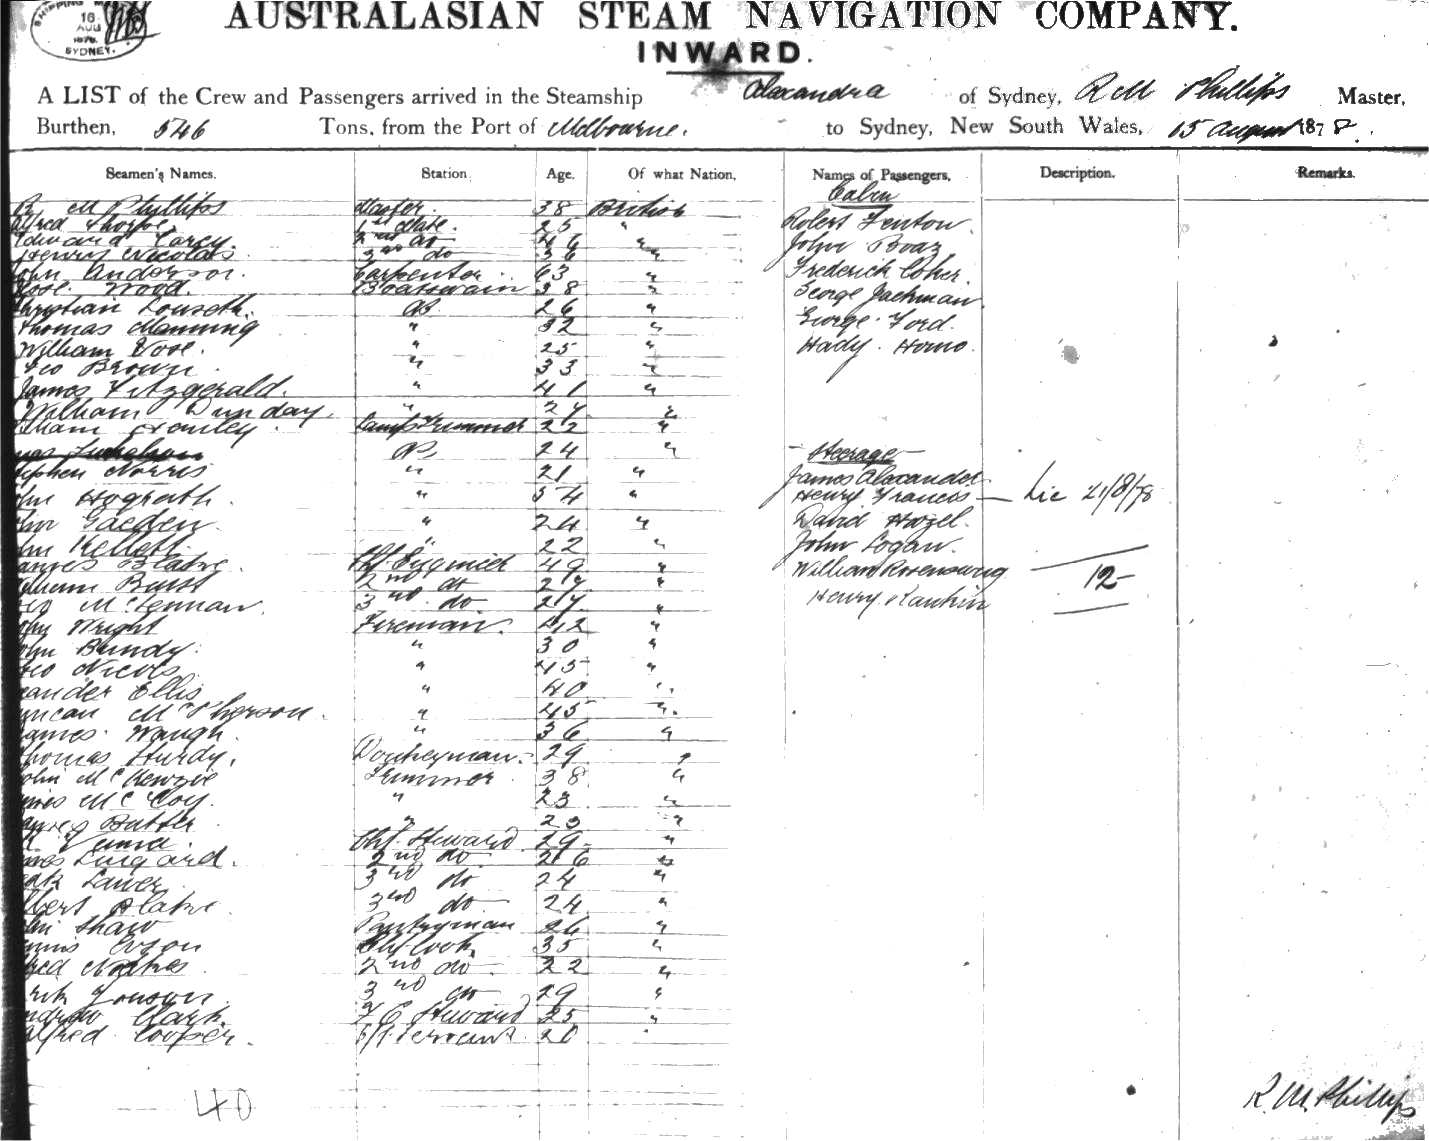 SHIPPING MA
16
AUG
1878
SYDNEY.
AUSTRALASIAN STEAM NAVIGATION COMPANY.
INWARD.
A LIST of the Crew and Passengers arrived in the Steamship Alexandra of Sydney, R M Phillips Master,
Burthen, 546 Tons, from the Port of Melbourne. to Sydney, New South Wales, 15 August 1878.
Seamen's Names. Station. Age. Of what Nation, Names of Passengers, Description. Remarks.
Cabin
R M Phillips Master. 38 British
Alfred Thorpe 1st Mate. 25 " Robert Fenton.
Edward Carey. 2nd do 46 " John Boaz
Henry Nicolas 3rd do 36 "
John Anderson. Carpenter 63 " Frederick Coher.
Wood. Boatswain 38 " George Jackman
Christian Louseth. AB. 26 "
Thomas Manning " 32 " George Ford.
William Vose. " 25 " Hady. Homo.
Geo Brown. " 33 "
James Fitzgerald. " 41 "
William Dunday. " 27 "
William Hanley. Lamp Trimmer 22 "
AB, 24 " Steerage
Stephen Norris " 21 " James Alexander
John Hograth. " 54 " Henry Francis — Lic 21/8/78
John Gaeden. " 24 " David Hazel.
John Kellett. " 22 " John Logan.
James Blake. Chf. Engineer 49 " William Rosenswig
William Baist 2nd do 27 " 12-
Geo McLennan. 3rd do. 27 " Henry Rankin
John Wright Fireman. 42 "
John Bundy. " 30 "
Geo Nicols " 45 "
Alexander Ellis " 40 "
Duncan McPherson. " 45 "
James Waugh. " 36 "
Thomas Hurdy. Donkeyman. 29 "
John McKenzie Trimmer 38 "
James McCoy. " 23 "
James Butter " 23 "
Chf. Steward 29 "
James Lingard. 2nd do 26 "
Lawer 3rd do 24 "
Albert Blake. 3rd do 24 "
John Shaw Pantryman 26 "
Dennis Evson Chf Cook. 35 "
Alfred Noakes 2nd do 22 "
Erik Jonson. 3rd do 29 "
Andrew Clark. F C Steward 25 "
Alfred Cooper. Servant. 20 "
40
R. M. Phillips